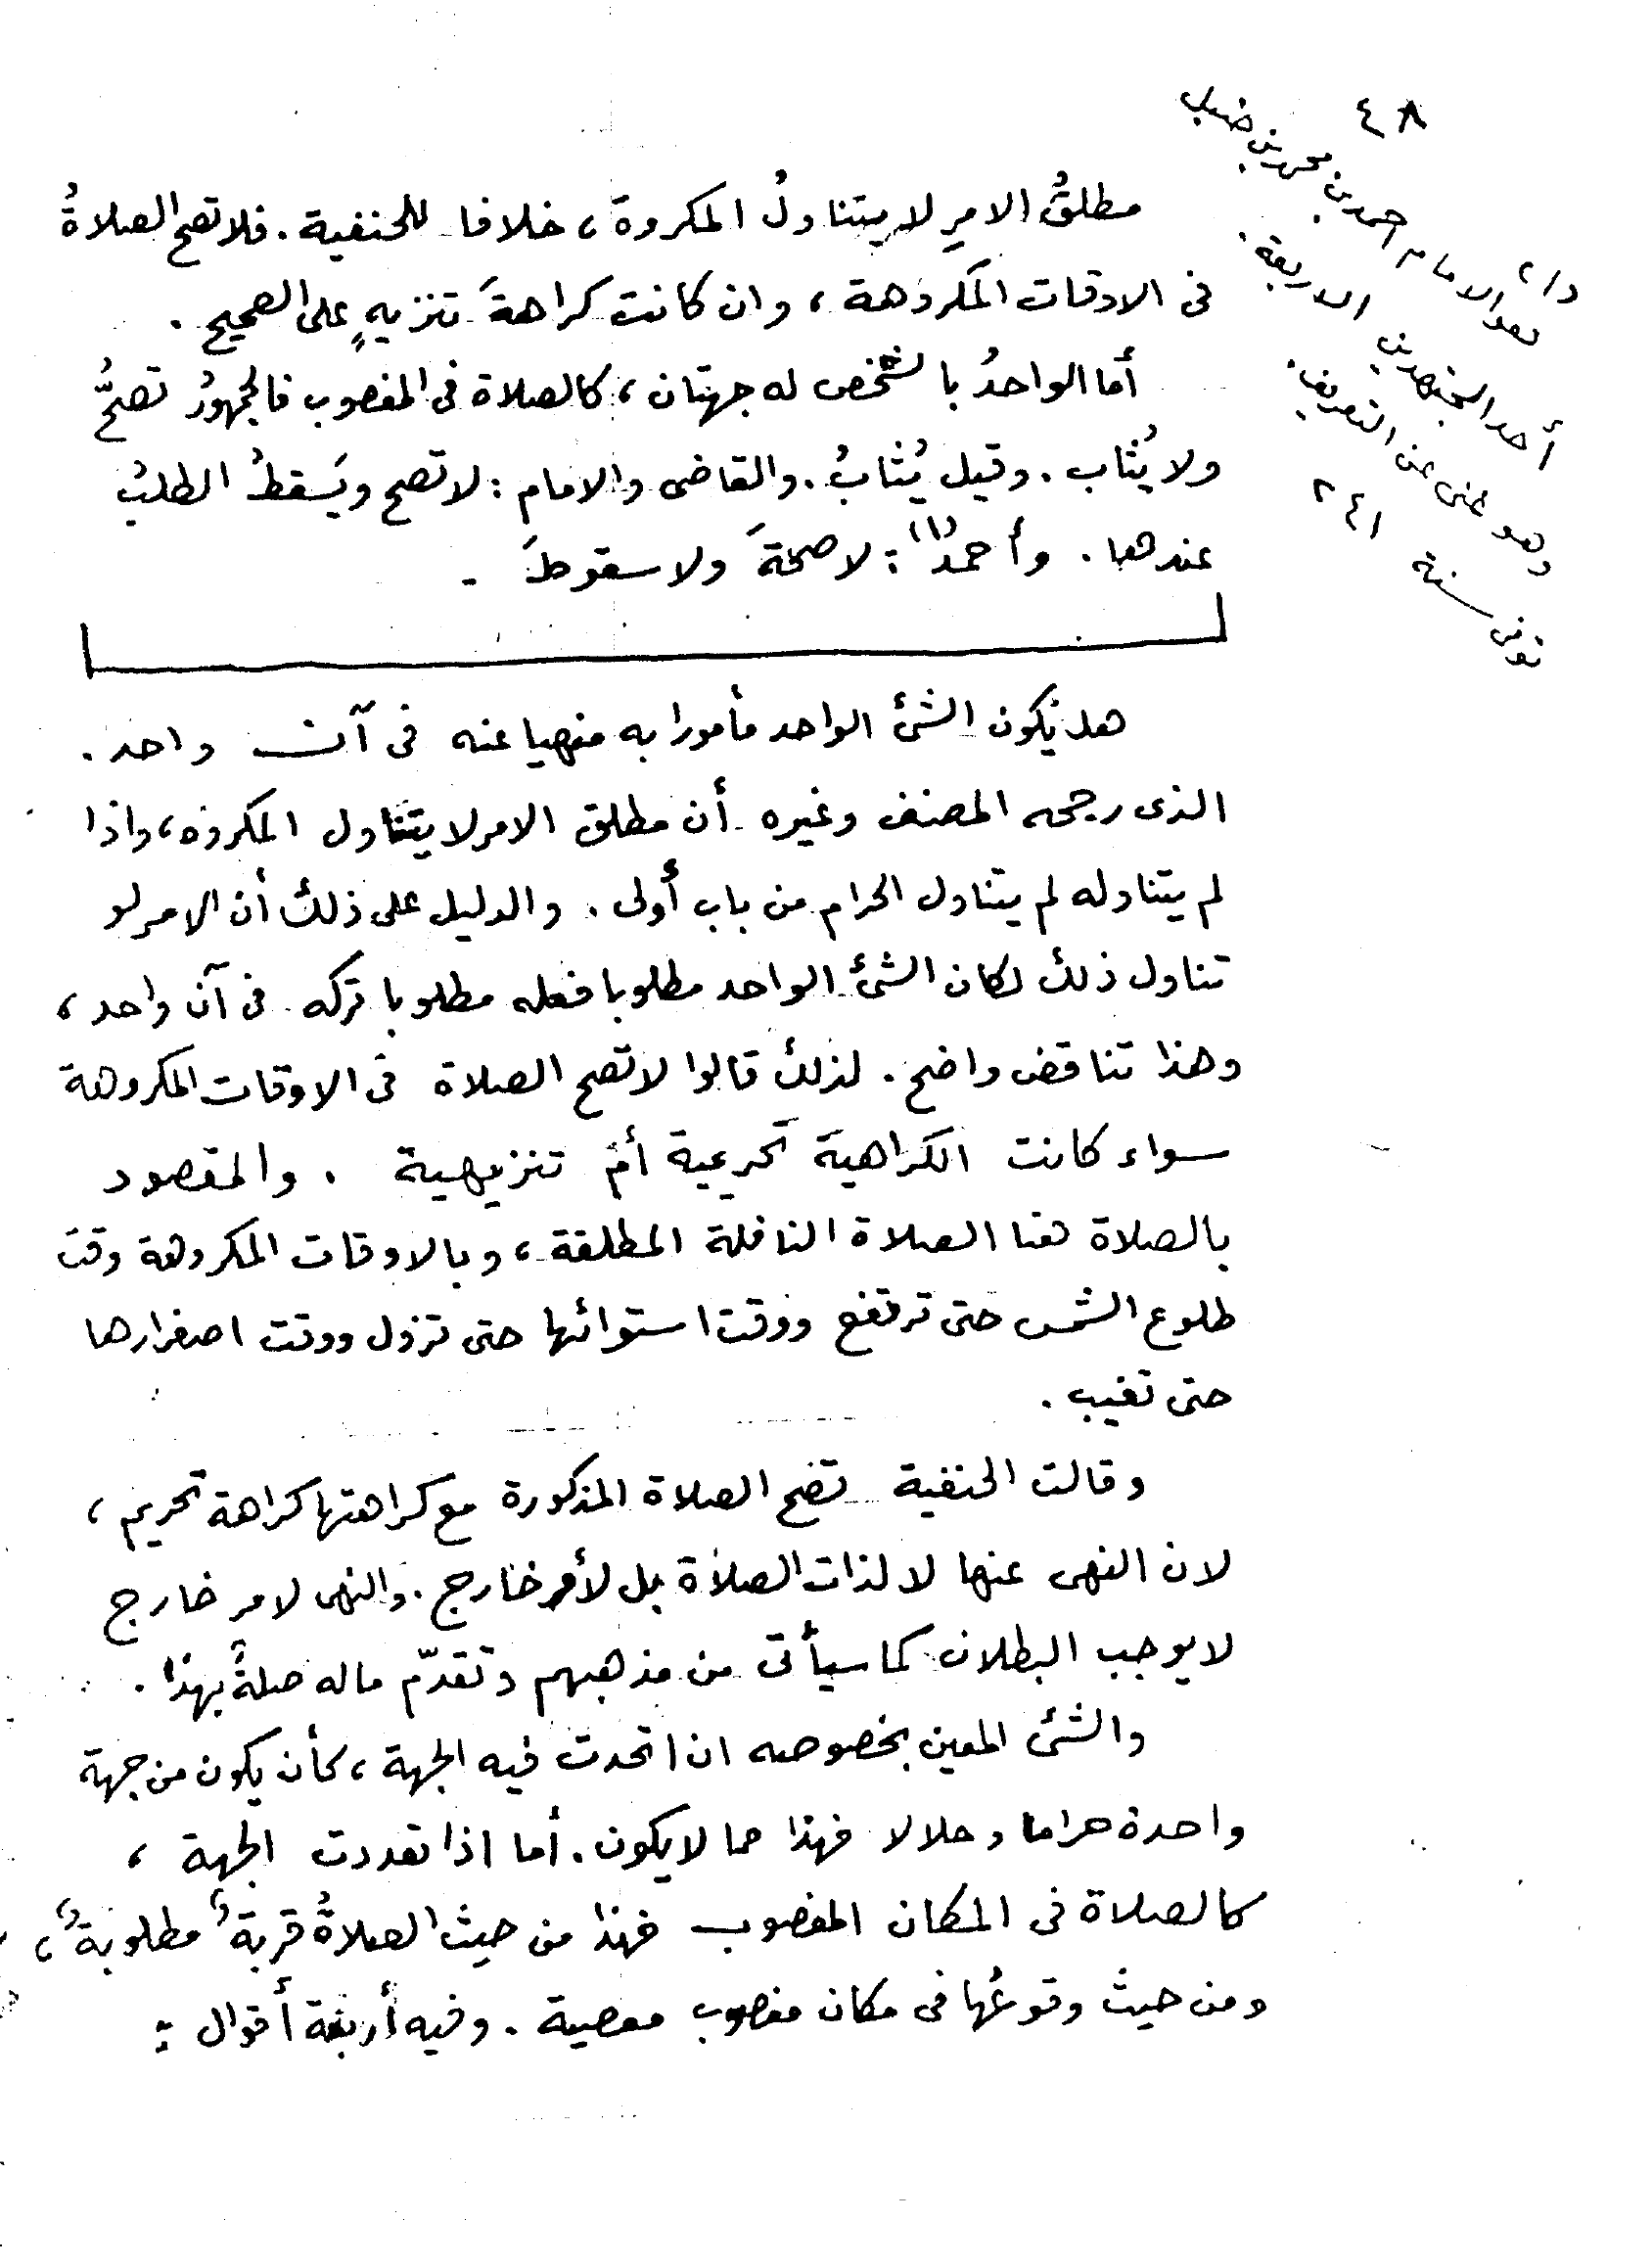 ٤٨
مطلقُ الامرِ لا يتناولُ المكروهَ، خلافا للحنفية. فلا تصح الصلاةُ
فى الاوقات المكروهة، وان كانت كراهةَ تنزيهٍ على الصحيح.
أما الواحدُ بالشخص له جهتان، كالصلاة فى المغصوب فالجمهورُ تصحُّ
ولا يُثاب. وقيل يُثابُ. والقاضى والامام: لا تصح ويَسقطُ الطلبُ
عندها. وأحمدُ(١): لا صحةَ ولا سقوطَ.
هل يكون الشئ الواحد مأمورا به منهيا عنه فى آن واحد.
الذى رجحه المصنف وغيره أن مطلق الامر لا يتناول المكروه، واذا
لم يتناوله لم يتناول الحرام من باب أولى. والدليل على ذلك أن الامر لو
تناول ذلك لكان الشئ الواحد مطلوبا فعله مطلوبا تركه فى آن واحد،
وهذا تناقض واضح. لذلك قالوا لا تصح الصلاة فى الاوقات المكروهة
سواء كانت الكراهية تحريمية أم تنزيهية. والمقصود
بالصلاة هنا الصلاة النافلة المطلقة، وبالاوقات المكروهة وقت
طلوع الشمس حتى ترتفع ووقت استوائها حتى تزول ووقت اصفرارها
حتى تغيب.
وقالت الحنفية تصح الصلاة المذكورة مع كراهتها كراهة تحريم،
لان النهى عنها لا لذات الصلاة بل لأمر خارج. والنهى لامر خارج
لا يوجب البطلان كما سيأتى من مذهبهم وتقدّم ماله صلةٌ بهذا.
والشئ المعين بخصوصه ان اتحدت فيه الجهة، كأن يكون من جهة
واحدة حراما وحلالا فهذا مما لا يكون. أما اذا تعددت الجهة،
كالصلاة فى المكان المغصوب فهذا من حيث الصلاةُ قربةٌ مطلوبةٌ،
ومن حيثُ وقوعُها فى مكان مغصوب معصية. وفيه أربعة أقوال:
(١) هو الامام احمد بن محمد بن حنبل
أحد المجتهدين الاربعة.
وهو غنى عن التعريف.
توفى سنة ٢٤١